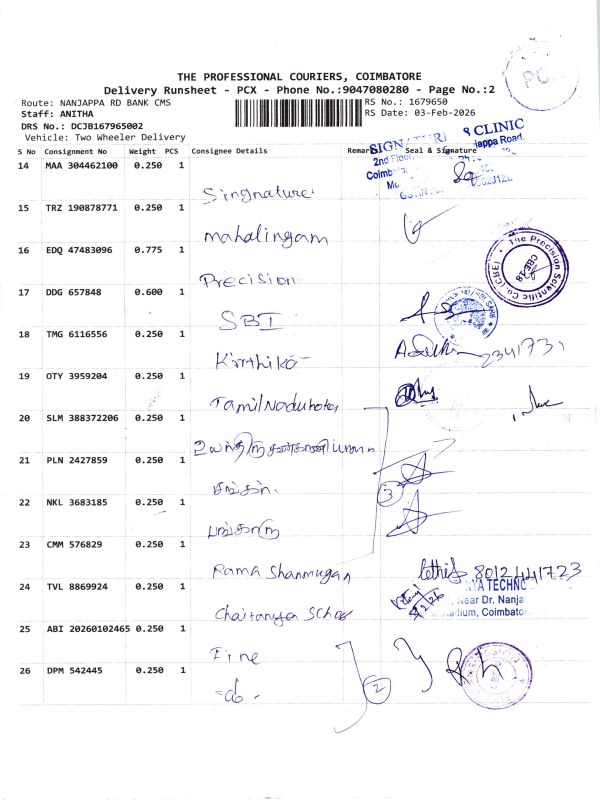 THE PROFESSIONAL COURIERS, COIMBATORE
Delivery Runsheet - PCX - Phone No.:9047080280 - Page No.:2
Route: NANJAPPA RD BANK CMS
RS No.: 1679650
Staff: ANITHA
RS Date: 03-Feb-2026
DRS No.: DCJB167965002
Vehicle: Two Wheeler Delivery
S No Consignment No Weight PCS Consignee Details Remarks Seal & Signature
14 MAA 304462100 0.250 1
Singnature
15 TRZ 190878771 0.250 1
mahalingam
16 EDQ 47483096 0.775 1
Precision
The Precision Scientific Co. (CBE)
17 DDG 657848 0.600 1
SBI
18 TMG 6116556 0.250 1
Kirthika
2341731
19 OTY 3959204 0.250 1
Tamilnadu
20 SLM 388372206 0.250 1
21 PLN 2427859 0.250 1
சங்கர்
3
22 NKL 3683185 0.250 1
23 CMM 576829 0.250 1
Rama Shanmugan
8012441723
24 TVL 8869924 0.250 1
Near Dr. Nanja
Coimbato
Chaitanya
25 ABI 20260102465 0.250 1
Fine
26 DPM 542445 0.250 1
-do-
2